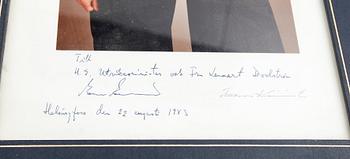 Till
H.E. Utrikesminister och Fru Lennart Bodström
Helsingfors den 22 augusti 1983